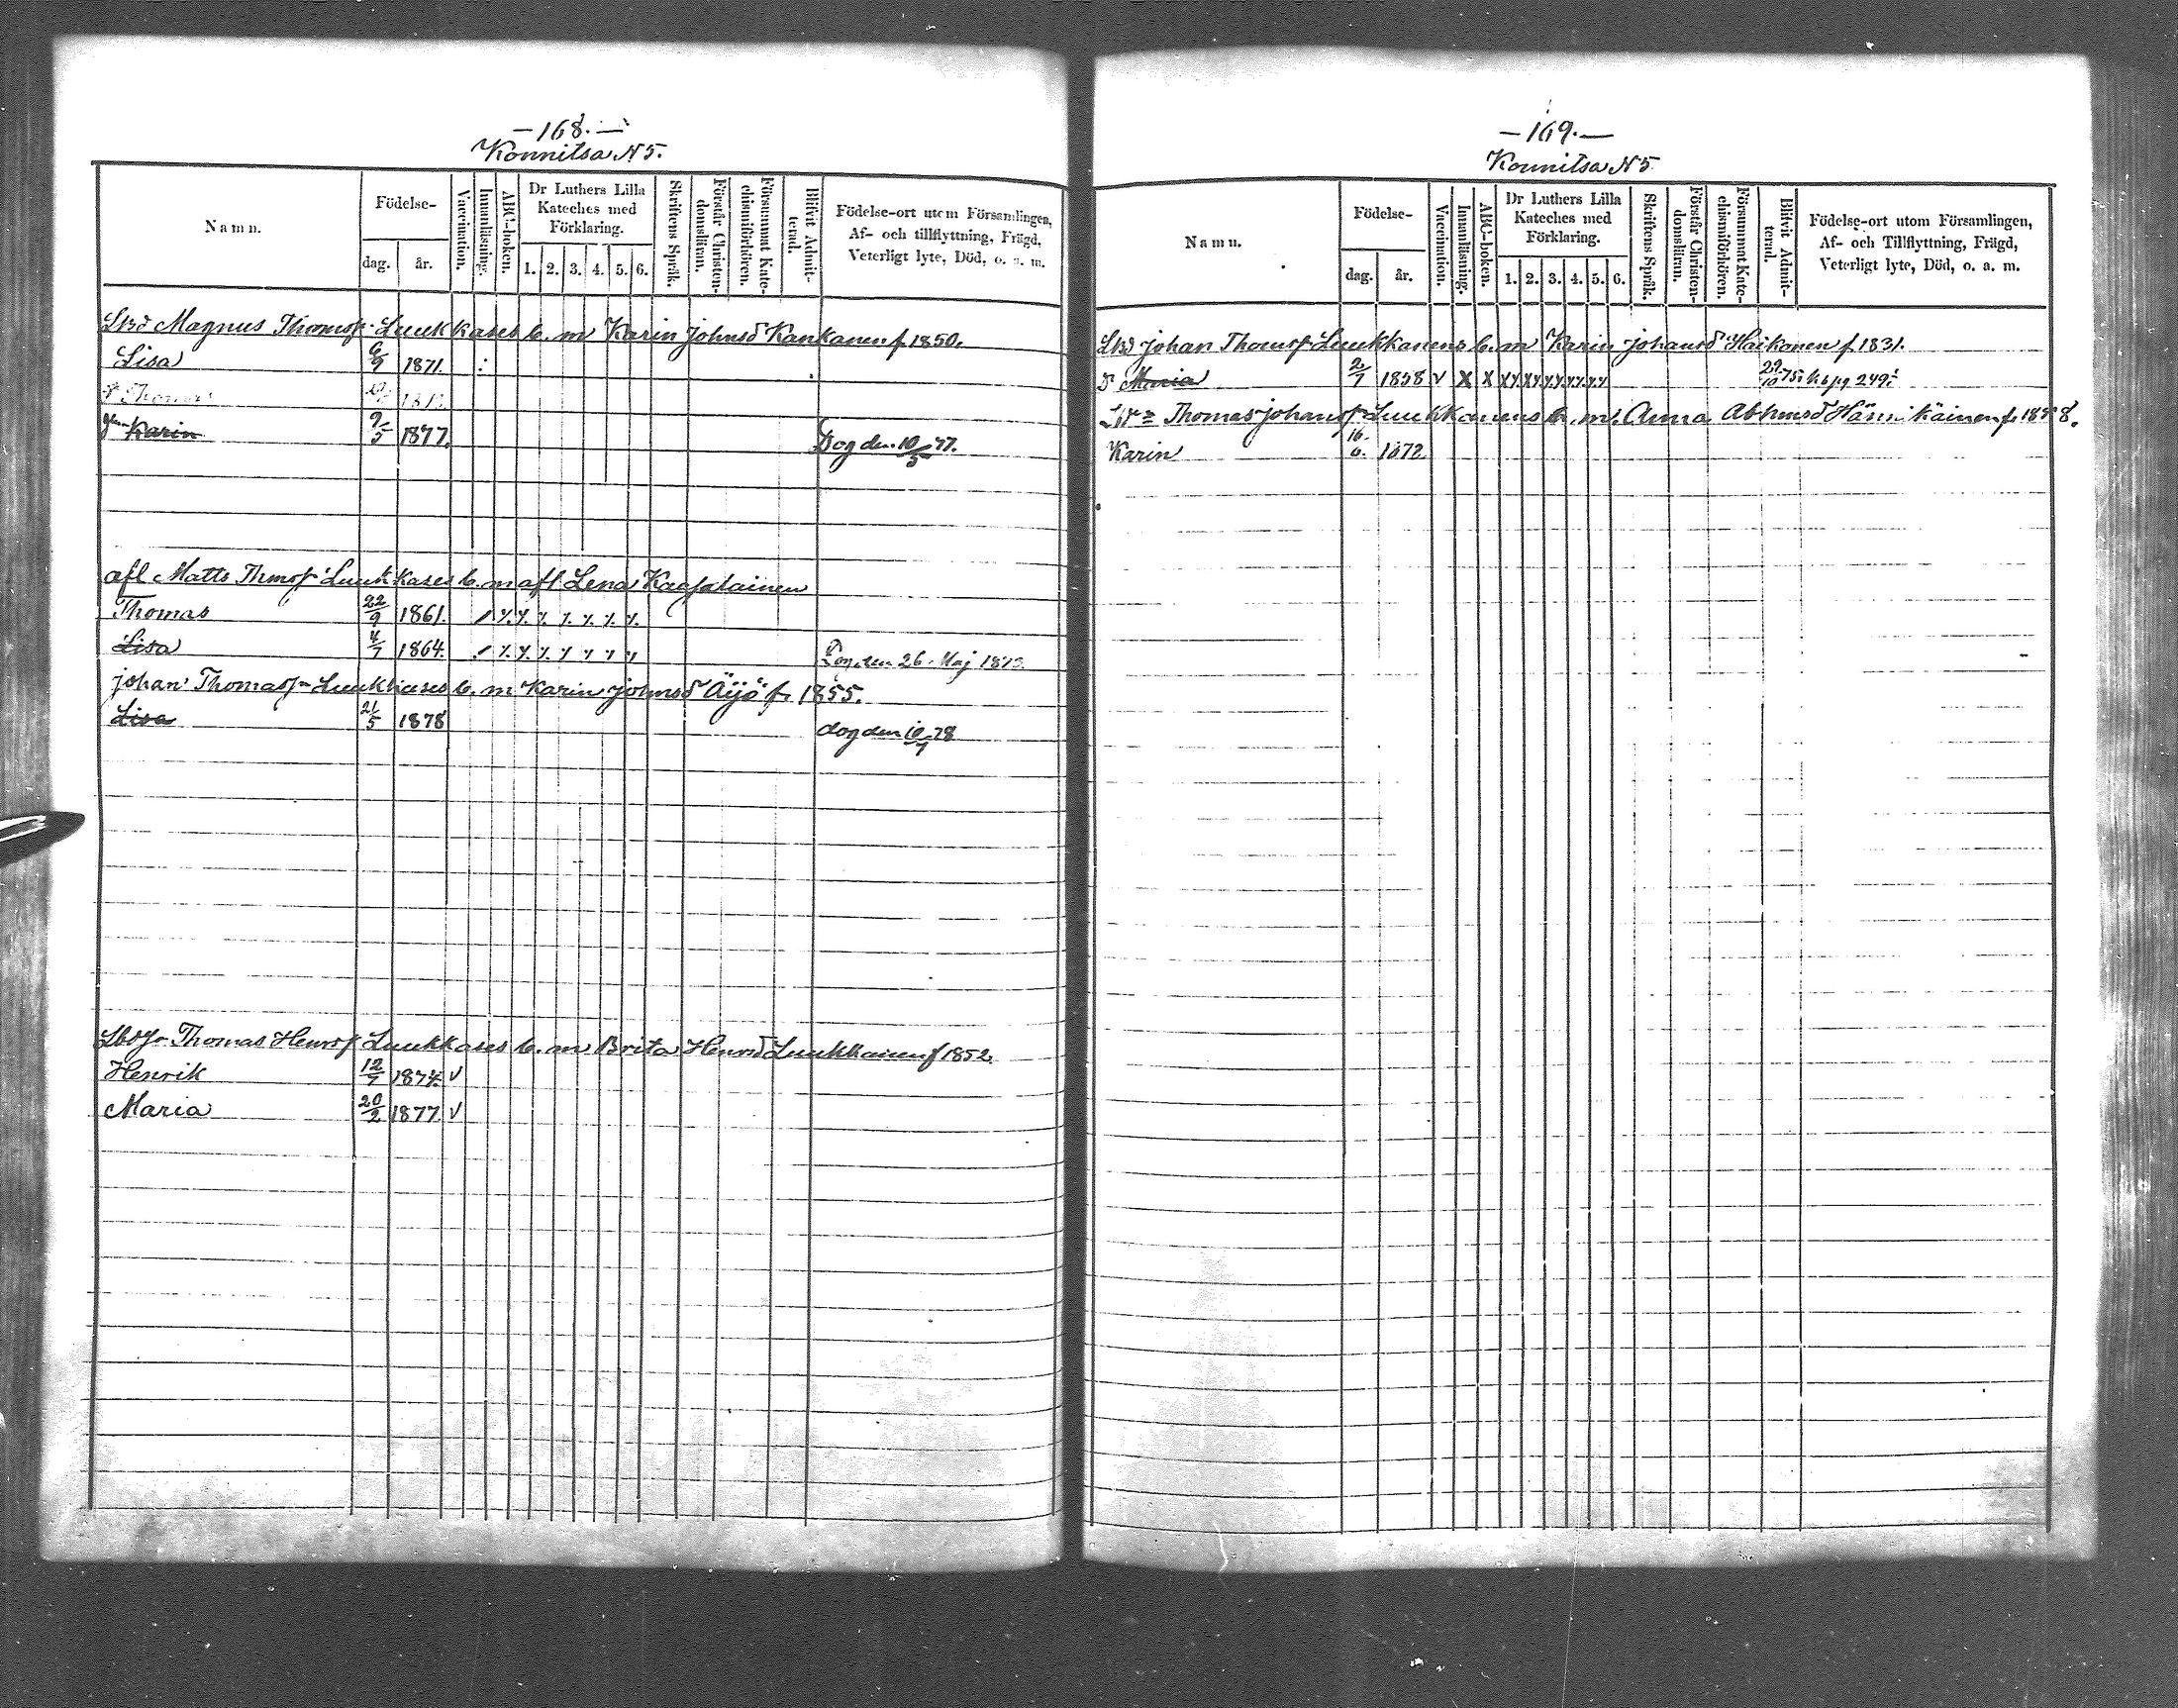 — 168. —
Konnitsa N 5.
Namn.
Födelse-
dag.
år.
Vaccination.
Innanläsning.
ABC-boken.
Dr Luthers Lilla
Kateches med
Förklaring.
1. 2. 3. 4. 5. 6.
Skriftens Språk.
Förstår Christen-
domsläran.
Försummat Kate-
chismiförhören.
Blifvit Admit-
terad.
Födelse-ort utom Församlingen,
Af- och tillflyttning, Frägd,
Veterligt lyte, Död, o. a. m.
Magnus Thomsf. Luukkases b. m Karin Johnsd Kankanen f. 1850.
Lisa 6/9 1871.
Thomas
Karin 9/5 1877. Dog den 10/5 77.
afl Matts Thmsf Luukkases b. m afl. Lena
Thomas 22/9 1861.
Lisa 4/7 1864. 26 Maj
johan Thomasf Luukkases b. m Karin johnsd Äijö f. 1855.
Lisa 21/5 1878 dog den 10/7 78
Thomas Henrsf Luukkases b. m Brita Henrsd Luukkainen f 1852.
Henrik 12/7 1874. v
Maria 20/2 1877. v
— 169. —
Konnitsa N 5.
Namn.
Födelse-
dag.
år.
Vaccination.
Innanläsning.
ABC-boken.
Dr Luthers Lilla
Kateches med
Förklaring.
1. 2. 3. 4. 5. 6.
Skriftens Språk.
Förstår Christen-
domsläran.
Försummat Kate-
chismiförhören.
Blifvit Admit-
terad.
Födelse-ort utom Församlingen,
Af- och Tillflyttning, Frägd,
Veterligt lyte, Död, o. a. m.
johan Thomsf Luukkanens b. m Karin johansd Haikonen f 1831.
D Maria 2/7 1858 v X X 29/10 75. 249.
Thomas johansf Luukkanens b. m. Anna Abhmsd Hännikäinen f.
Karin 16/6. 1872